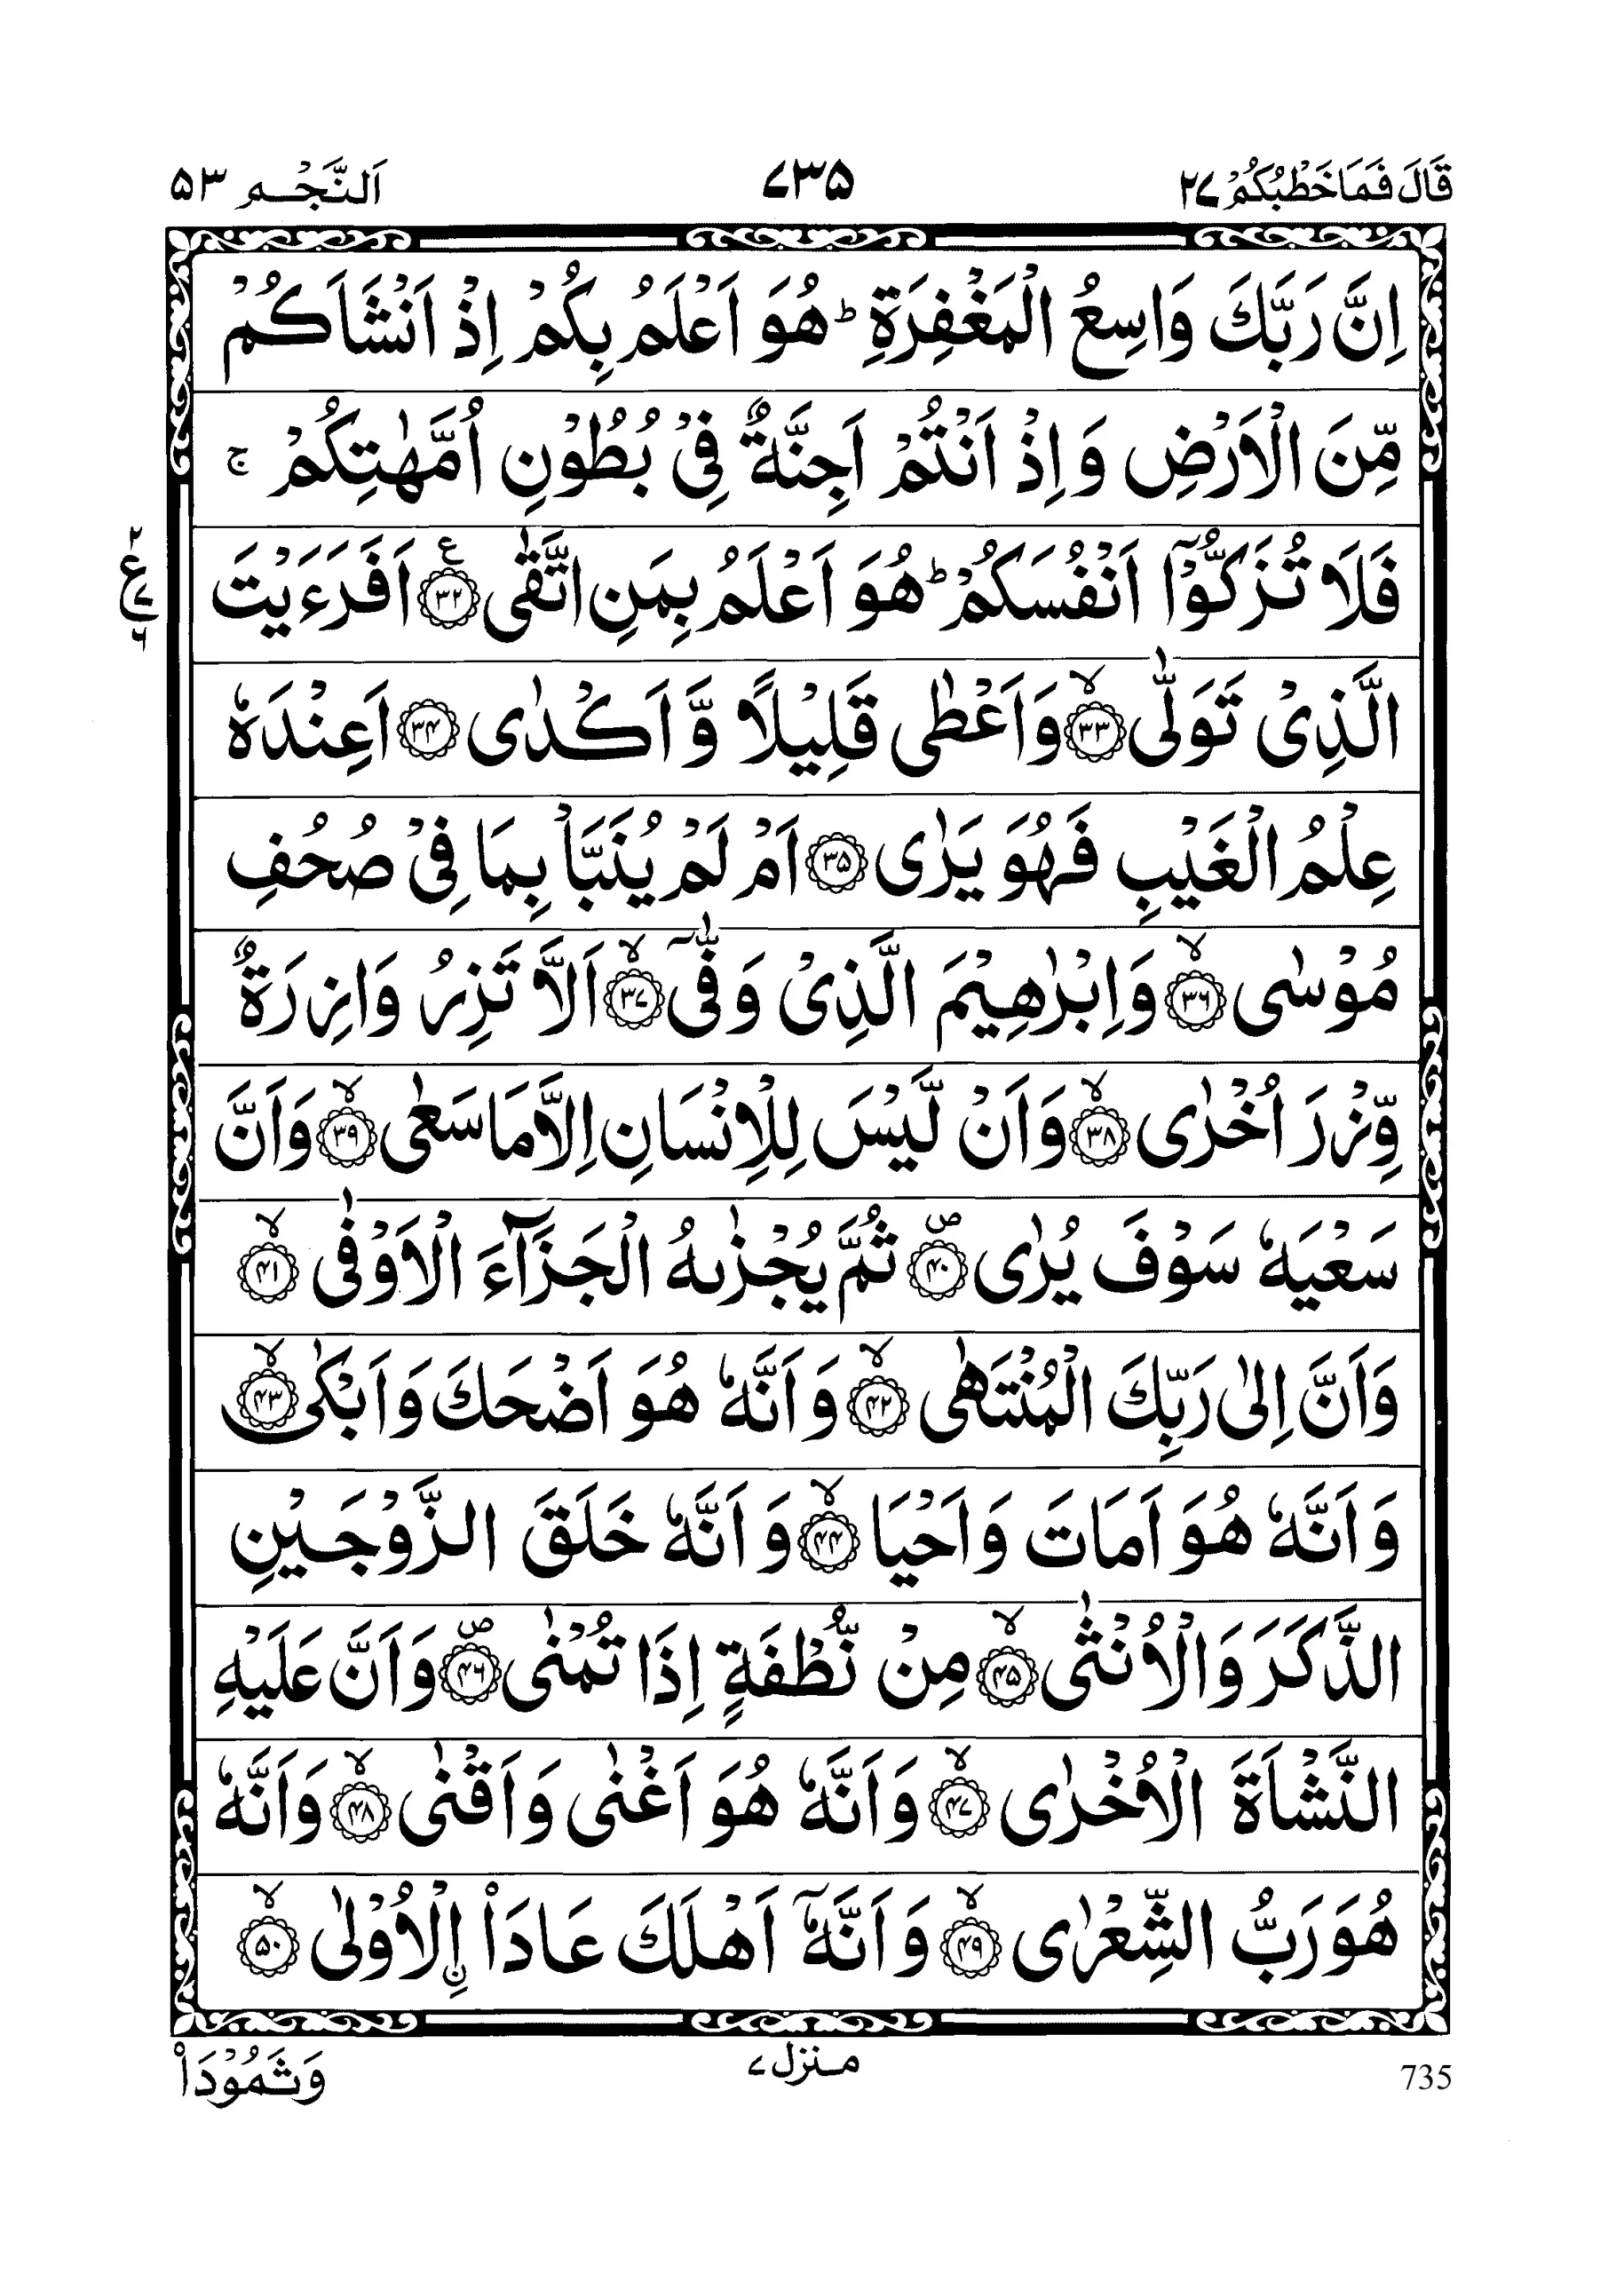 قَالَ فَمَا خَطْبُكُمْ ٢٧ ٧٣٥ اَلنَّجْم ٥٣
اِنَّ رَبَّكَ وَاسِعُ الْمَغْفِرَةِ ؕ هُوَ اَعْلَمُ بِكُمْ اِذْ اَنْشَاَكُمْ
مِّنَ الْاَرْضِ وَاِذْ اَنْتُمْ اَجِنَّةٌ فِيْ بُطُوْنِ اُمَّهٰتِكُمْ ۚ
فَلَا تُزَكُّوْۤا اَنْفُسَكُمْ ؕ هُوَ اَعْلَمُ بِمَنِ اتَّقٰى ﴿٣٢﴾ ع اَفَرَءَيْتَ
٢ ع ٧ ٦
الَّذِيْ تَوَلّٰى ﴿٣٣﴾ ۙ وَاَعْطٰى قَلِيْلًا وَّاَكْدٰى ﴿٣٤﴾ اَعِنْدَهٗ
عِلْمُ الْغَيْبِ فَهُوَ يَرٰى ﴿٣٥﴾ اَمْ لَمْ يُنَبَّاْ بِمَا فِيْ صُحُفِ
مُوْسٰى ﴿٣٦﴾ ۙ وَاِبْرٰهِيْمَ الَّذِيْ وَفّٰىۤ ﴿٣٧﴾ ۙ اَلَّا تَزِرُ وَازِرَةٌ
وِّزْرَ اُخْرٰى ﴿٣٨﴾ ۙ وَاَنْ لَّيْسَ لِلْاِنْسَانِ اِلَّا مَا سَعٰى ﴿٣٩﴾ ۙ وَاَنَّ
سَعْيَهٗ سَوْفَ يُرٰى ﴿٤٠﴾ ص ثُمَّ يُجْزٰىهُ الْجَزَآءَ الْاَوْفٰى ﴿٤١﴾ ۙ
وَاَنَّ اِلٰى رَبِّكَ الْمُنْتَهٰى ﴿٤٢﴾ ۙ وَاَنَّهٗ هُوَ اَضْحَكَ وَاَبْكٰى ﴿٤٣﴾ ۙ
وَاَنَّهٗ هُوَ اَمَاتَ وَاَحْيَا ﴿٤٤﴾ ۙ وَاَنَّهٗ خَلَقَ الزَّوْجَيْنِ
الذَّكَرَ وَالْاُنْثٰى ﴿٤٥﴾ ۙ مِنْ نُّطْفَةٍ اِذَا تُمْنٰى ﴿٤٦﴾ ص وَاَنَّ عَلَيْهِ
النَّشْاَةَ الْاُخْرٰى ﴿٤٧﴾ ۙ وَاَنَّهٗ هُوَ اَغْنٰى وَاَقْنٰى ﴿٤٨﴾ ۙ وَاَنَّهٗ
هُوَ رَبُّ الشِّعْرٰى ﴿٤٩﴾ ۙ وَاَنَّهٗۤ اَهْلَكَ عَادَا۟ اِ۬لْاُوْلٰى ﴿٥٠﴾ ۙ
وَثَمُوْدَا۟ منزل ٧ 735